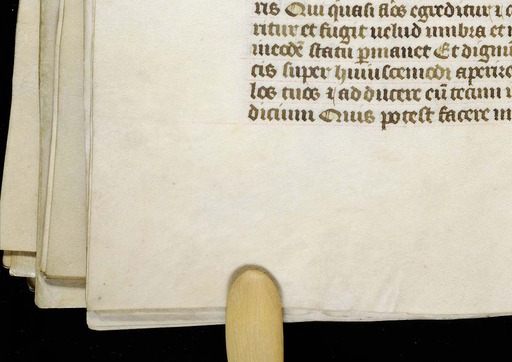 ris Qui quasi flos egreditur ⁊ c
ritur et fugit uelud umbra et n
in eodē statu ꝑmanet Et dignū
cis super huiuscemodi aperire
los tuos ⁊ adducere eū tecum
dicium Quis potest facere m